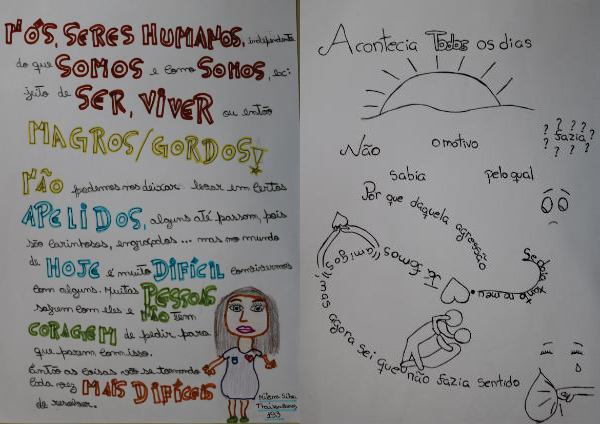 NÓS, SERES HUMANOS, independente
do que SOMOS e como SOMOS, ou
jeito de
SER, VIVER ou então
MAGROS/GORDOS!
NÃO podemos nos deixar levar em certos
APELIDOS, alguns até passam, pois
são carinhosos, engraçados... mas no mundo
de HOJE é muito DIFÍCIL convivermos
com alguns. Muitas PESSOAS
sofrem com eles e NÃO tem
CORAGEM de pedir para
que parem com isso.
Então as coisas vão se tornando
cada vez MAIS DIFÍCEIS
de resolver.
Milena Silva
193
Acontecia Todos os dias
? ? ? ?
? fazia ?
? ? ?
Não sabia o motivo pelo qual
Por que daquela agressão
Já fomos
(amigos)
mas agora sei que não fazia sentido